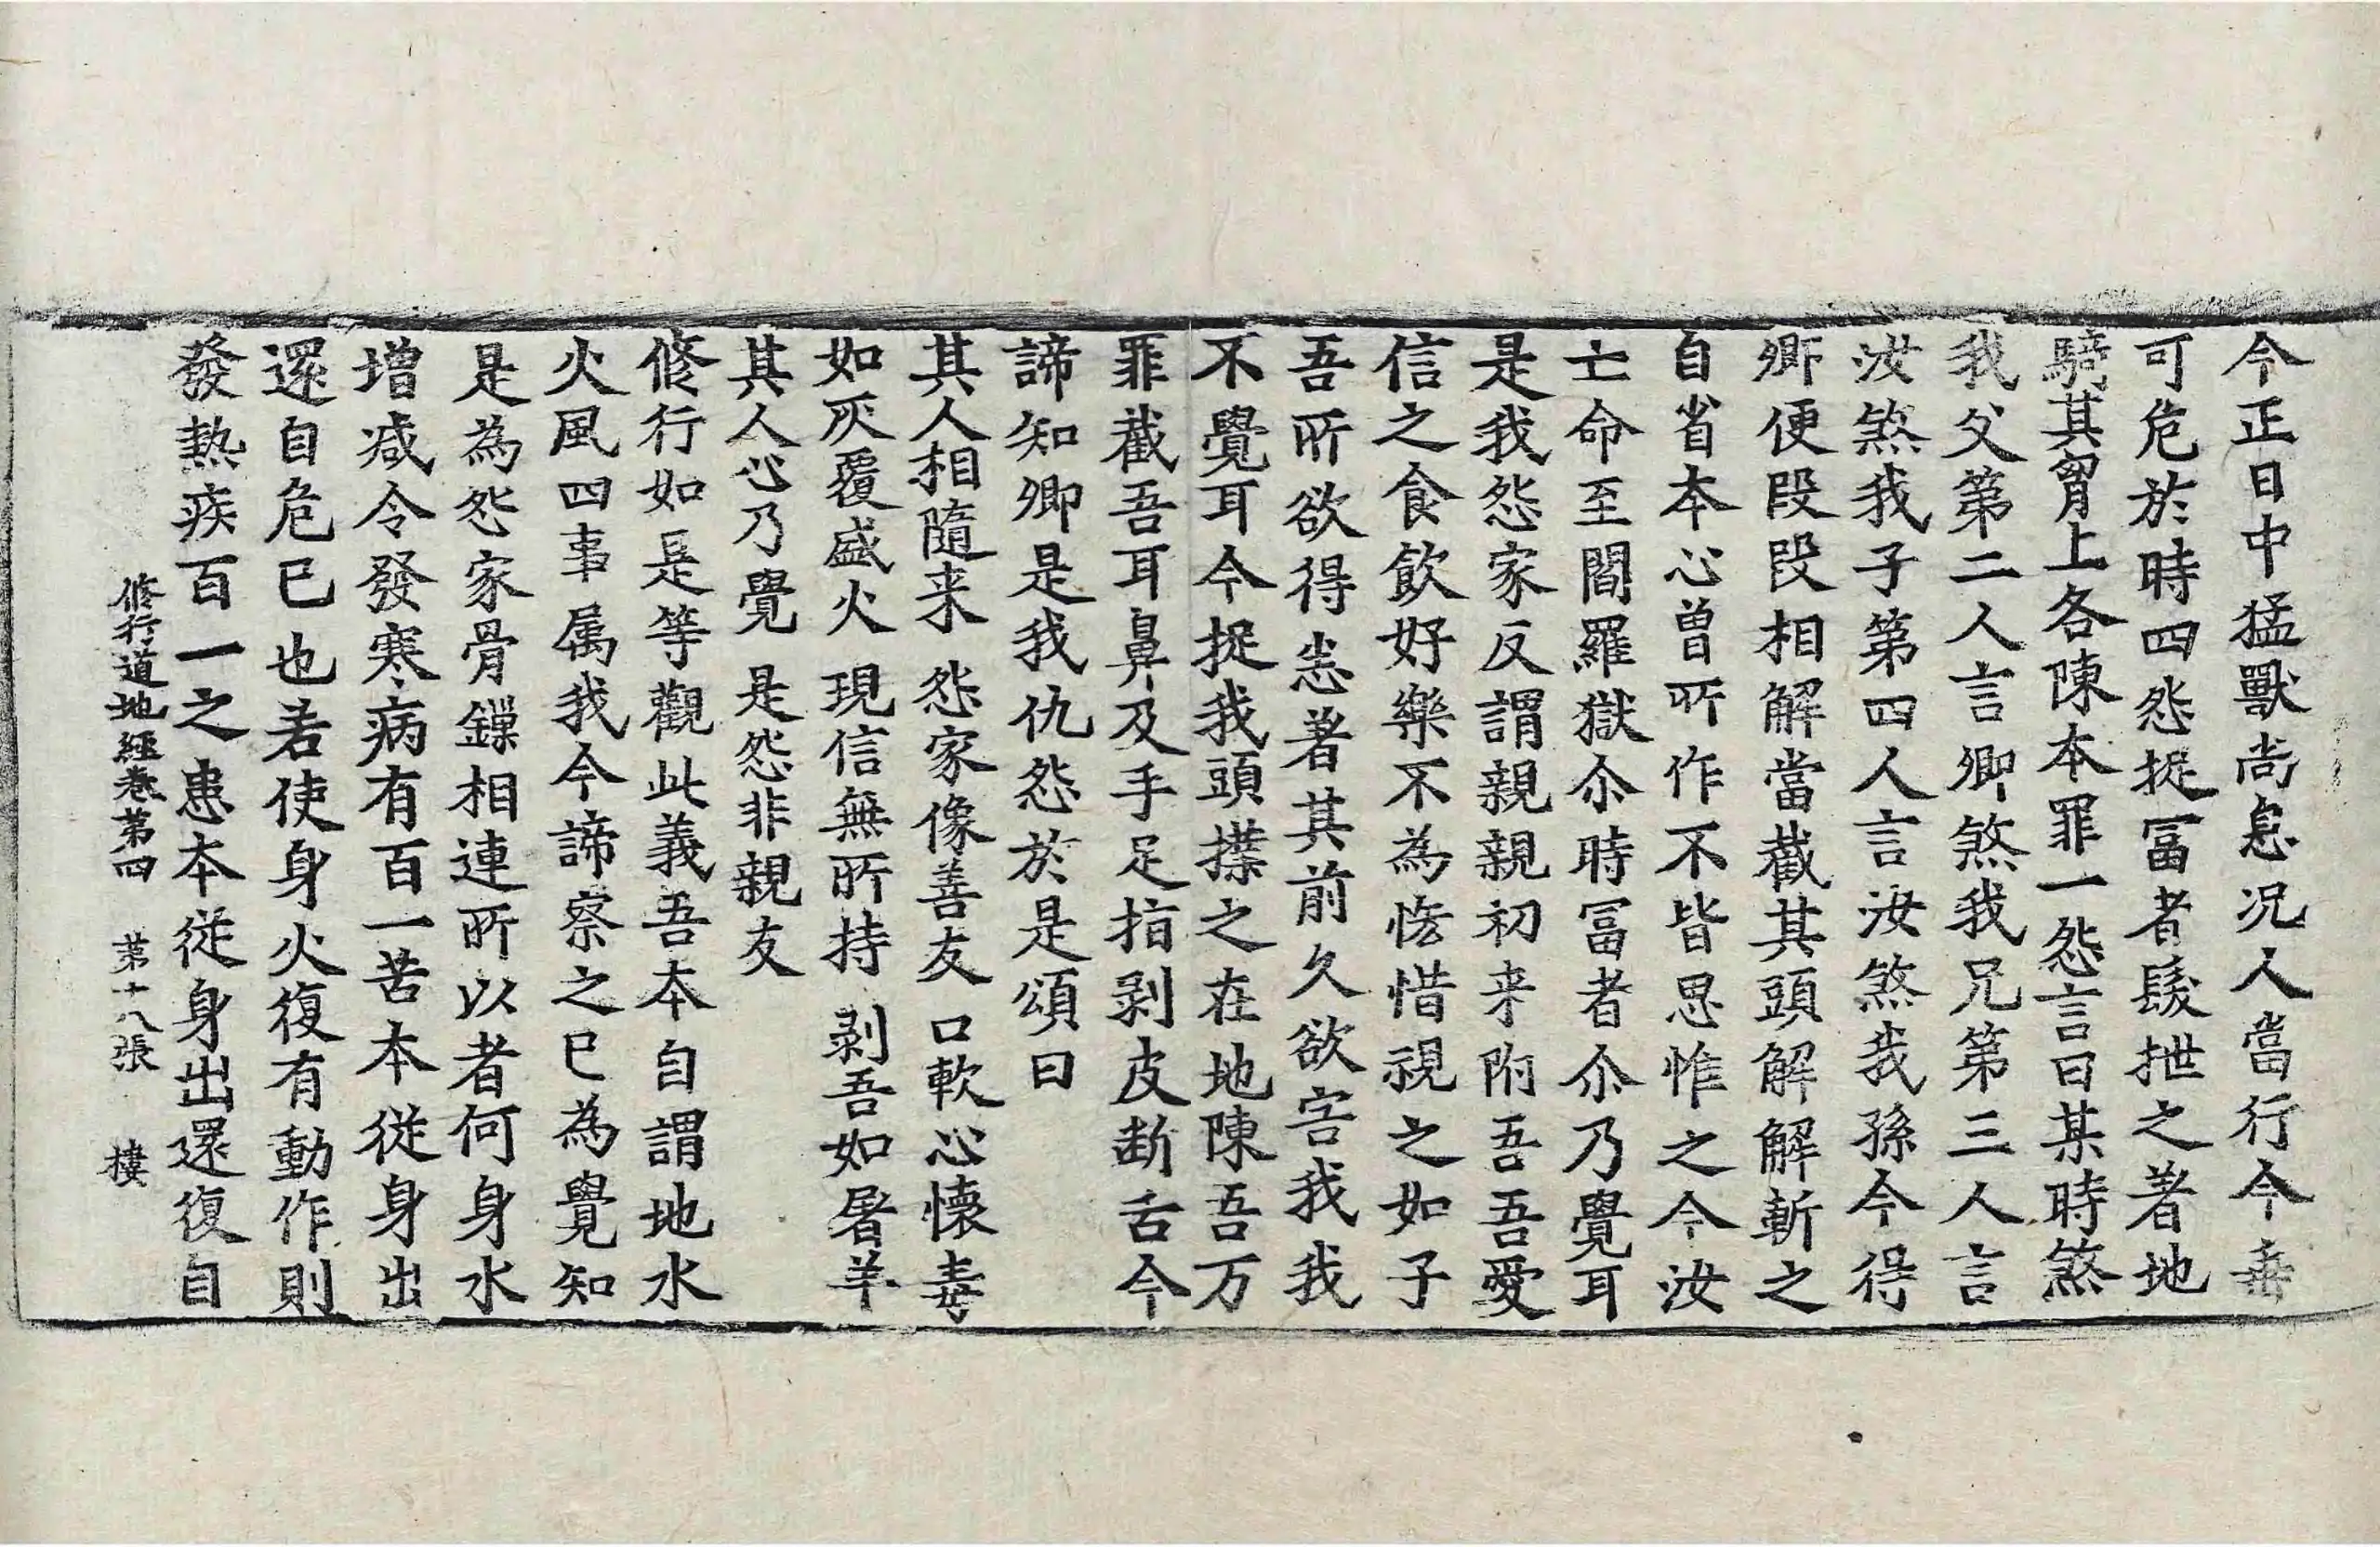 今正日中猛獸尚息況人當行今垂
可危於時四怨捉冨者髮拽之著地
騎其胷上各陳本罪一怨言曰某時煞
我父第二人言卿煞我兄第三人言
汝煞我子第四人言汝煞我孫今得
卿便段段相解當截其頭解解斬之
自省本心曽所作不皆思惟之今汝
亡命至閻羅獄尒時冨者尒乃覺耳
是我怨家反謂親親初来附吾吾愛
信之食飲好樂不為悋惜視之如子
吾所欲得恣著其前久欲害我我
不覺耳今捉我頭㩧之在地陳吾万
罪截吾耳鼻及手足指剥皮断舌今
諦知卿是我仇怨於是頌曰
其人相隨来 怨家像善友 口軟心懷毒
如灰覆盛火 現信無所持 剥吾如屠羊
其人心乃覺 是怨非親友
修行如是等觀此義吾本自謂地水
火風四事属我今諦察之已為覺知
是為怨家骨鏁相連所以者何身水
増减令發寒病有百一苦本從身出
還自危已也若使身火復有動作則
發熱疾百一之患本從身出還復自
修行道地經卷第四 第十八張 樓